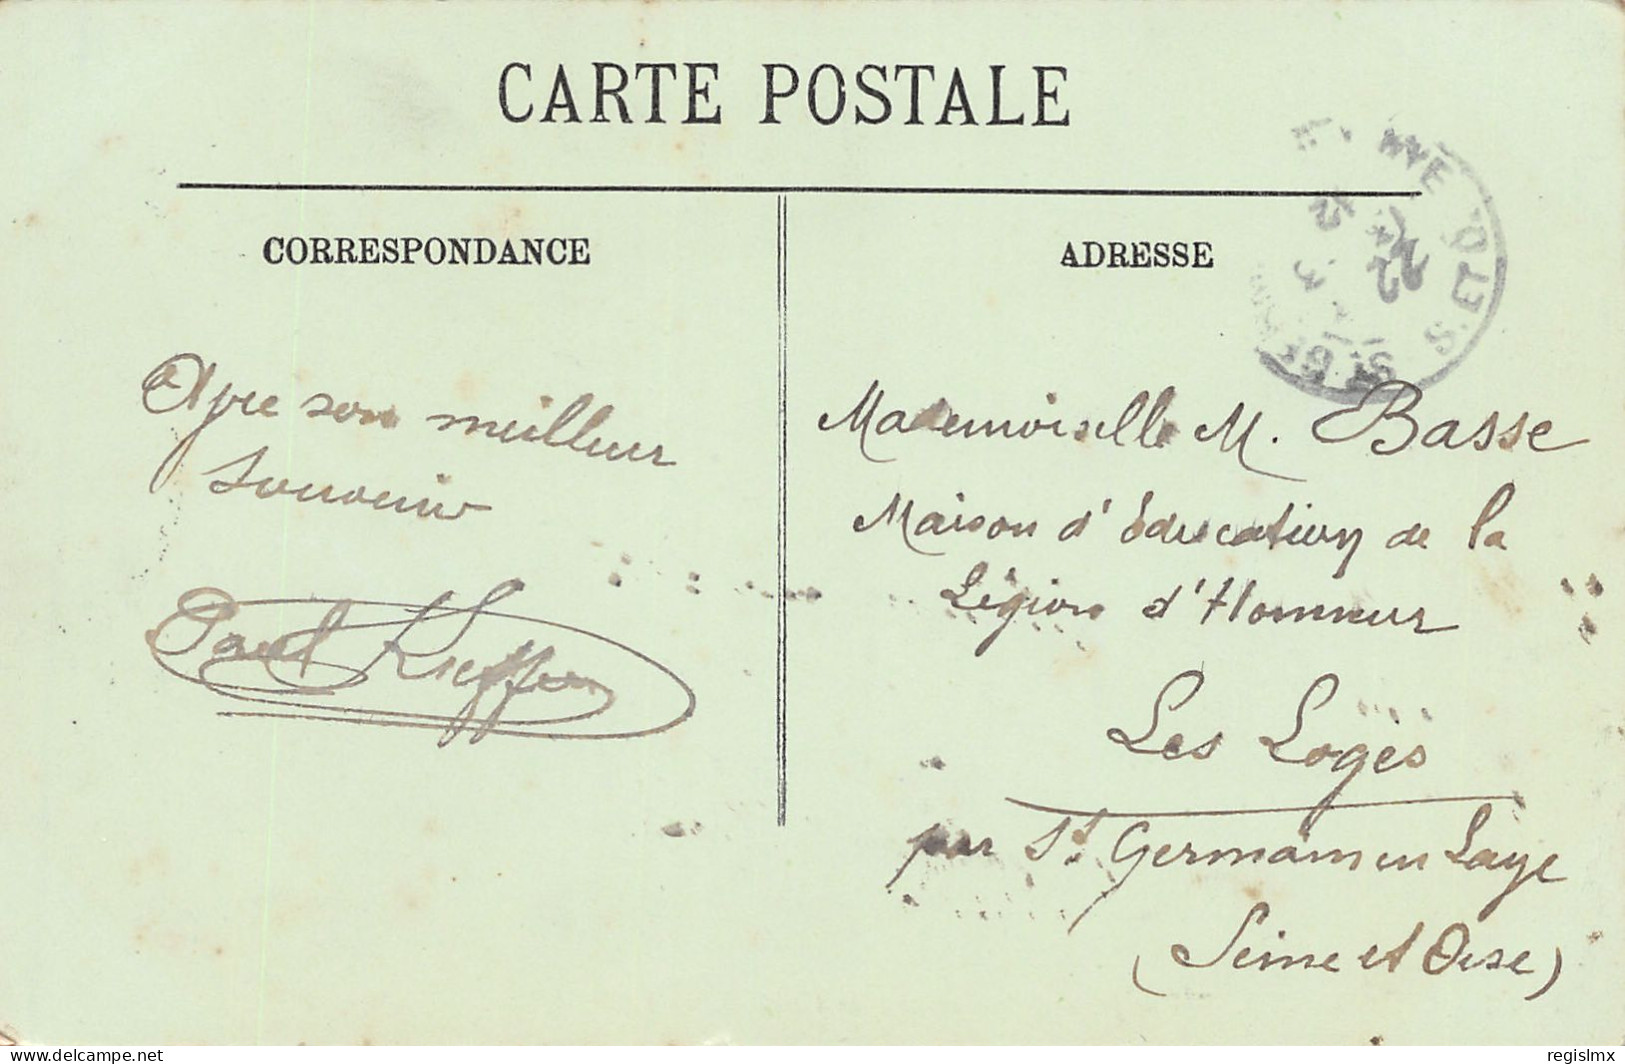 CARTE POSTALE
CORRESPONDANCE
ADRESSE
Avec son meilleur
Souvenir
Paul Kieffer
Mademoiselle M. Basse
Maison d'éducation de la
Légion d'Honneur
Les Loges
par St Germain en Laye
(Seine et Oise)
ST GE
S. ET O.
www.delcampe.net
regislmx